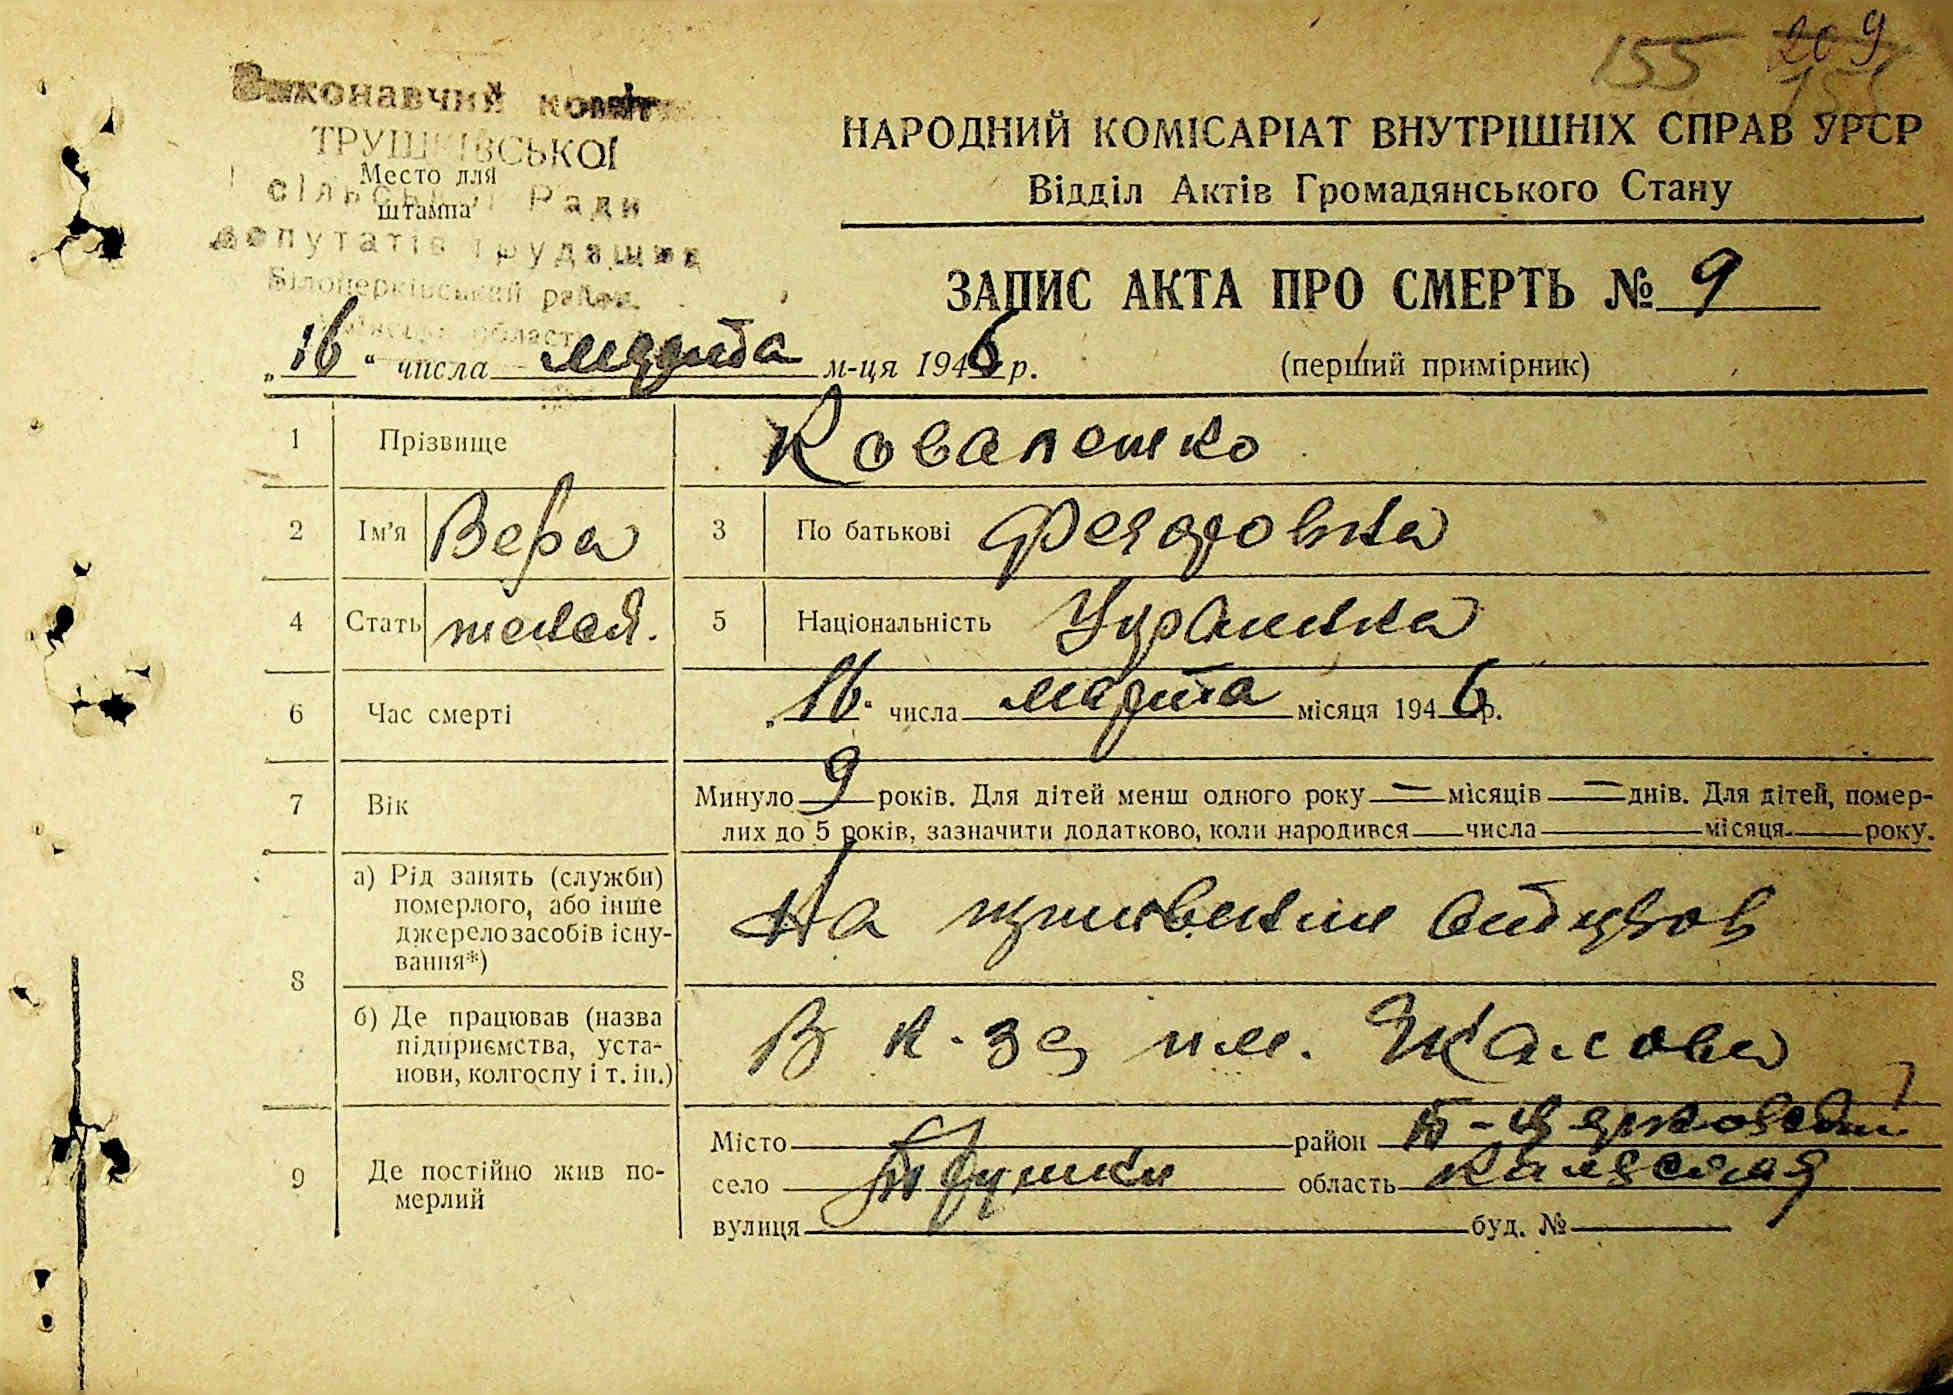 155 209
155
Виконавчий коміт
ТРУШКІВСЬКОЇ
Место для
штампа
сільської Ради
депутатів трудящих
Білоцерківський район
області
НАРОДНИЙ КОМІСАРІАТ ВНУТРІШНІХ СПРАВ УРСР
Відділ Актів Громадянського Стану
ЗАПИС АКТА ПРО СМЕРТЬ № 9
„16“ числа марта м-ця 1946 р.
(перший примірник)
1 Прізвище Коваленко
2 Ім'я Вера 3 По батькові
4 Стать 5 Національність
6 Час смерті „16“ числа марта місяця 1946 р.
7 Вік Минуло 9 років. Для дітей менш одного року — місяців — днів. Для дітей, помер-
лих до 5 років, зазначити додатково, коли народився числа місяця року.
8 а) Рід занять (служби)
померлого, або інше
джерело засобів існу-
вання*)
На
б) Де працював (назва
підприємства, уста-
нови, колгоспу і т. ін.)
В к-зе им.
9 Де постійно жив по-
мерлий
Місто район Б-Церковский
село Трушки область Киевская
вулиця буд. №